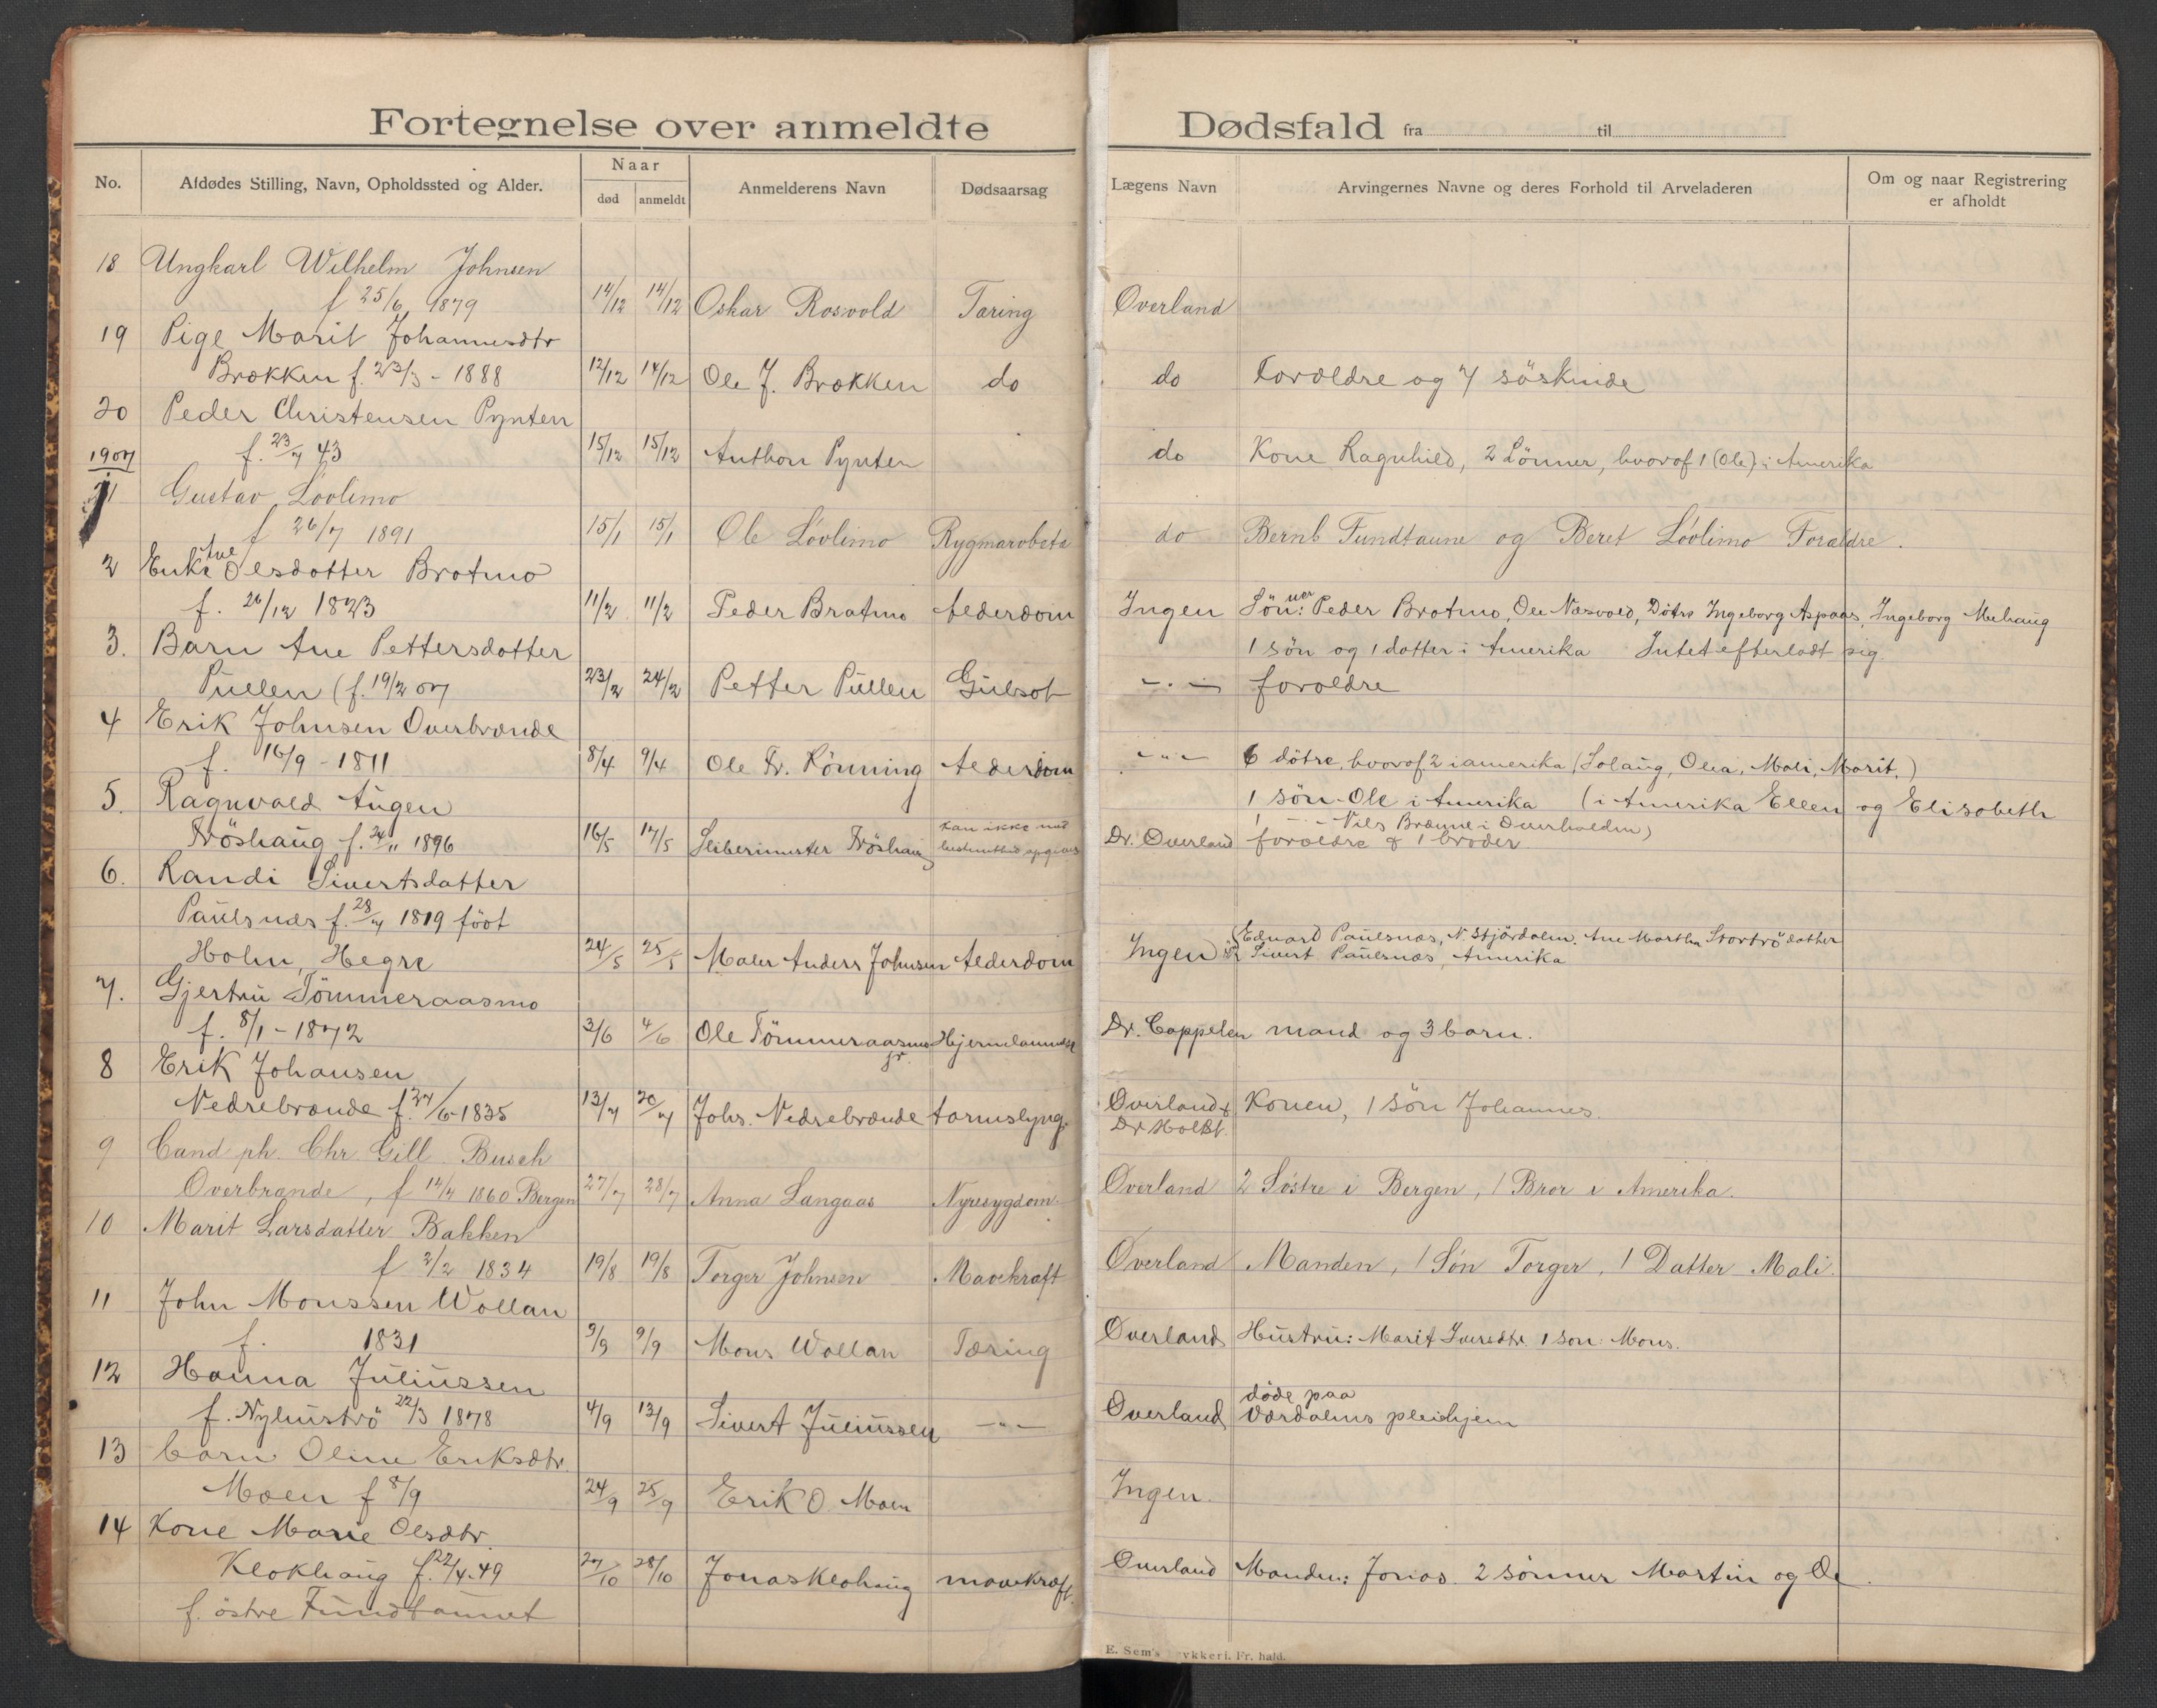 Fortegnelse over anmeldte Dødsfald fra til
No. Afdødes Stilling, Navn, Opholdssted og Alder. Naar død anmeldt Anmelderens Navn Dødsaarsag Lægens Navn Arvingernes Navne og deres Forhold til Arveladeren Om og naar Registrering er afholdt
18 Ungkarl Wilhelm Johnsen
f 25/6 1879 14/12 14/12 Oskar Rosvold Tæring Overland
19 Pige Marit Johannesdtr
Brækken f. 23/3 - 1888 12/12 14/12 Ole J. Brækken do do Forældre og 7 söskinde
20 Peder Christensen Pynten
f. 23/7 43 15/12 15/12 Anthon Pynten do Kone Ragnhild, 2 Sönner, hvoraf 1 (Ole) i Amerika
1907
1 Gustav Lövlimo
f 26/7 1891 15/1 15/1 Ole Lövlimo do Bernt Fundtaune og Beret Lövlimo Forældre.
2 Enke Ane Olsdotter Bratmo
f. 26/12 1823 11/2 11/2 Peder Bratmo Alderdom Ingen Sönner: Peder Bratmo, Ole Næsvold, Døtre Ingeborg Aspaas, Ingeborg Mehaug
1 sön og 1 datter i Amerika Intet efterladt sig
3. Barn Ane Pettersdatter
Pullen (f. 19/2 07 23/2 24/2 Petter Pullen Gulsot -"- forældre
4 Erik Johnsen Overbrænde
f. 16/9 - 1811 8/4 9/4 Ole Fr. Rönning Alderdom -"- 6 dötre, hvoraf 2 i amerika (Solaug, Olia, Mali, Marit.)
1 sön - Ole i Amerika (i Amerika Ellen og Elisabeth
1 -"- Nils Brænne i Overhalden)
5. Ragnvald Augen
Fröshaug f. 24/11 1896 16/5 17/5 Fröshaug kan ikke med bestemthed opgives Dr. Overland forældre & 1 broder
6. Randi Sivertsdatter
Paulsnæs f. 28/7 1819 födt
Holm, Hegre 24/5 25/5 Maler Anders Johnsen Alderdom Ingen Edvard Paulsnæs, N. Stjördalen. Ane Martha Stortrö datter
Sivert Paulsnæs, Amerika
7. Gjertru Tömmeraasmo
f. 8/1 - 1872 3/6 4/6 Ole Tömmeraasmo jr. Dr. Cappelen mand og 3 barn.
8 Erik Johansen
Nedrebrænde f. 24/6 - 1835 13/7 20/7 Johs. Nedrebrænde tarmslyng. Overland & Dr Holst. Konen, 1 sön Johannes.
9 Cand ph. Chr. Gill Busch
Overbrænde, f 14/4 1860 Bergen 27/7 28/7 Anna Langaas Nyresygdom. Overland 2 Søstre i Bergen, 1 Bror i Amerika.
10 Marit Larsdatter Bakken
f 2/2 1834 19/8 19/8 Torger Johnsen Mavekræft Overland Manden, 1 Søn Torger, 1 Datter Mali.
11 John Monssen Wollan
f. 1831 9/9 9/9 Mons Wollan Tæring Overland Hustru: Marit Iversdtr. 1 son: Mons.
12 Hanna Juliussen
f. Nyhuströ 22/3 1878 4/9 13/9 Sivert Juliussen -"- Overland döde paa
Værdalens pleiehjem
13 barn Oline Eriksdtr.
Moen f 8/9 24/9 25/9 Erik O. Moen Ingen.
14 Kone Marie Olsdtr.
Klokhaug f. 22/4-49 27/10 28/10 Jonas Klokhaug mavekræft. Overland Manden: Jonas. 2 sönner Martin og Ole.
f. östre Fundtaunet
E. Sem's Trykkeri. Fr. hald.